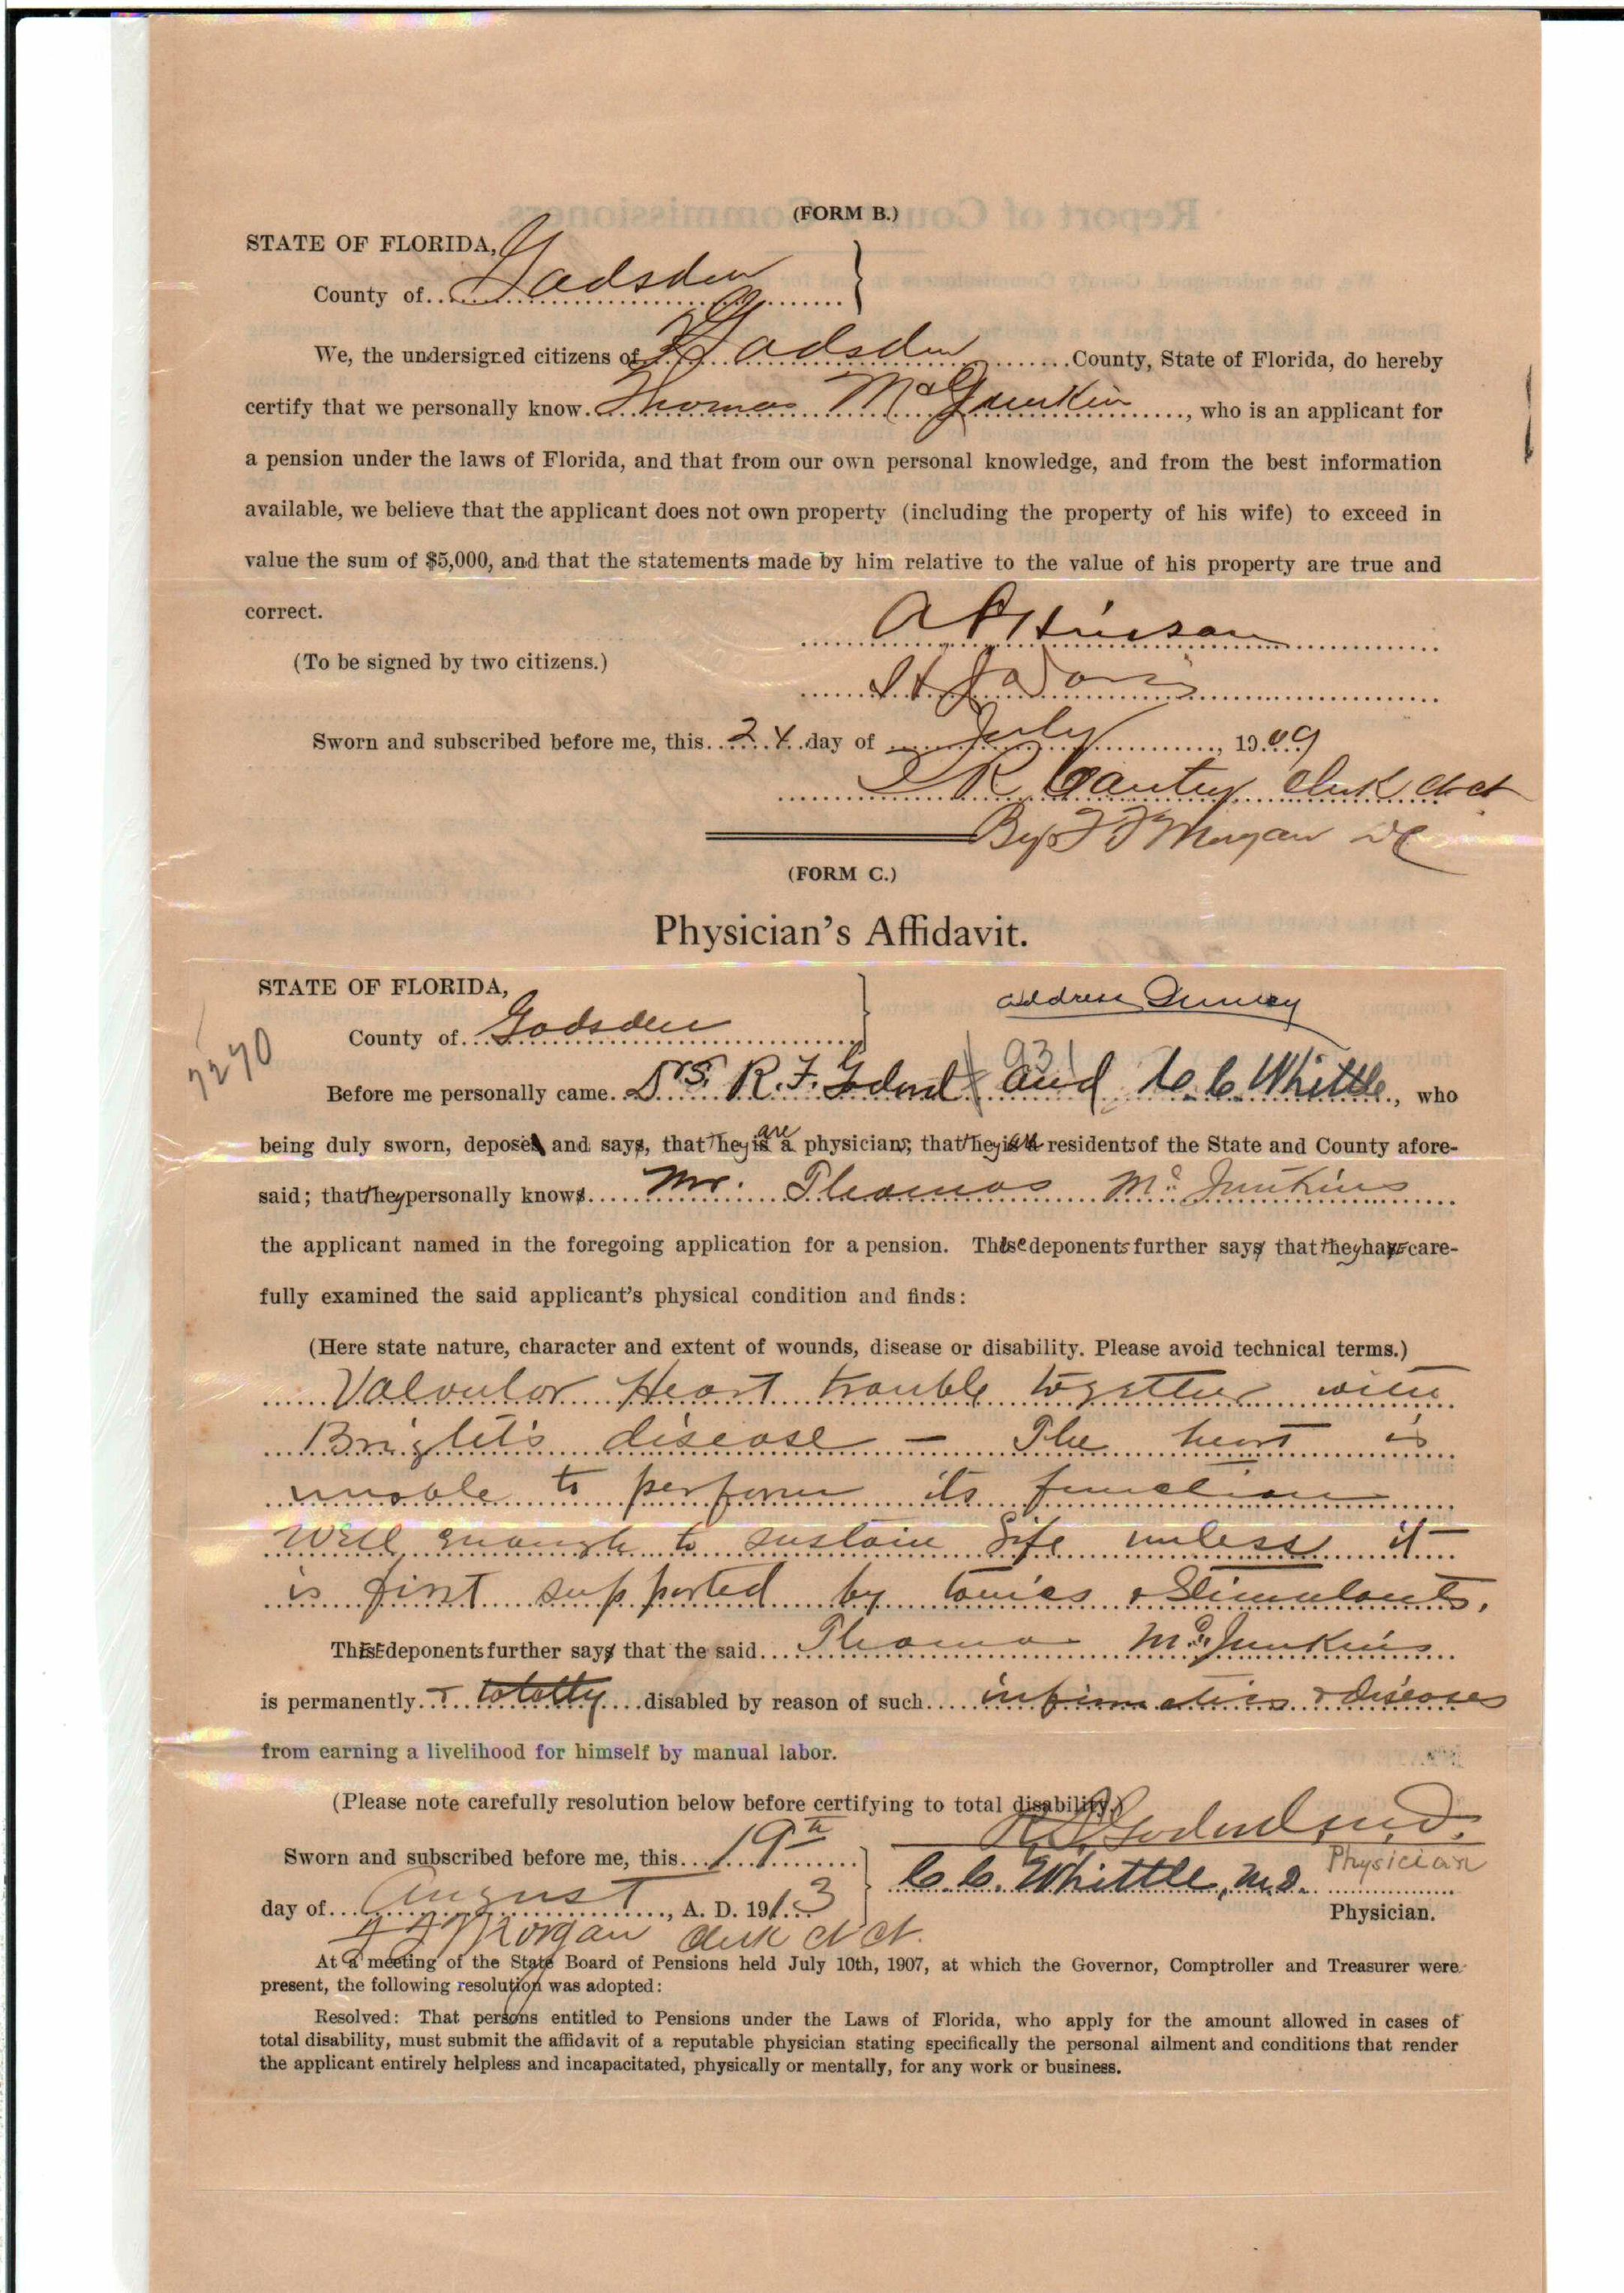 (FORM B.)
STATE OF FLORIDA,
County of Gadsden
We, the undersigned citizens of Gadsden County, State of Florida, do hereby
certify that we personally know Thomas McJunkin, who is an applicant for
a pension under the laws of Florida, and that from our own personal knowledge, and from the best information
available, we believe that the applicant does not own property (including the property of his wife) to exceed in
value the sum of $5,000, and that the statements made by him relative to the value of his property are true and
correct.
A P Hinson
(To be signed by two citizens.)
Sworn and subscribed before me, this 24 day of July, 1909
R Cantey Clerk Ct Ct
By Morgan DC
(FORM C.)
Physician's Affidavit.
STATE OF FLORIDA,
address Quincy
County of Gadsden
7270
931
Before me personally came Drs. R. F. and C. C. Whittle, who
being duly sworn, depose and say, that they are physicians; that they are residents of the State and County afore-
said; that they personally know Mr. Thomas McJunkins
the applicant named in the foregoing application for a pension. These deponents further say that they have care-
fully examined the said applicant's physical condition and finds:
(Here state nature, character and extent of wounds, disease or disability. Please avoid technical terms.)
Valvular Heart trouble together with
Bright's disease — The heart is
unable to perform its function
well enough to sustain life unless it
is first supported by tonics & Stimulants.
These deponents further say that the said Thomas McJunkins
is permanently & totally disabled by reason of such infirmities & diseases
from earning a livelihood for himself by manual labor.
(Please note carefully resolution below before certifying to total disability.)
M.D.
Physician
Sworn and subscribed before me, this 19th
C. C. Whittle, M.D.
day of August, A. D. 1913
Physician.
Morgan Clerk Ct Ct.
At a meeting of the State Board of Pensions held July 10th, 1907, at which the Governor, Comptroller and Treasurer were
present, the following resolution was adopted:
Resolved: That persons entitled to Pensions under the Laws of Florida, who apply for the amount allowed in cases of
total disability, must submit the affidavit of a reputable physician stating specifically the personal ailment and conditions that render
the applicant entirely helpless and incapacitated, physically or mentally, for any work or business.